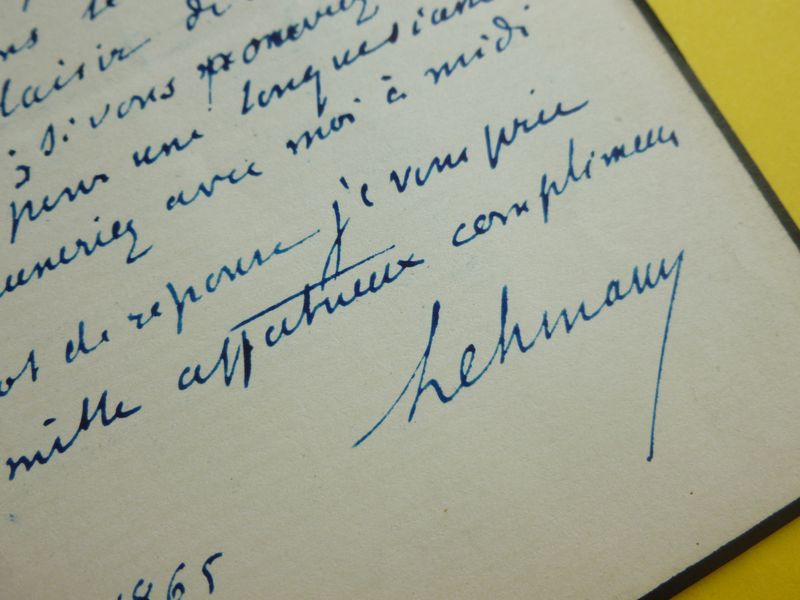 plaisir de
à si vous pouviez
pour une longue séance
euneriez avec moi à midi
ot de reponse je vous prie
mille affectueux compliments
Lehmann
1865